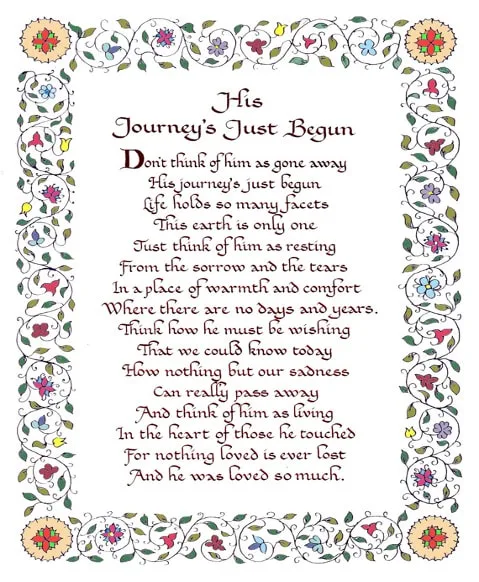 His
Journey's Just Begun
Don't think of him as gone away
His journey's just begun
Life holds so many facets
This earth is only one
Just think of him as resting
From the sorrow and the tears
In a place of warmth and comfort
Where there are no days and years.
Think how he must be wishing
That we could know today
How nothing but our sadness
Can really pass away
And think of him as living
In the heart of those he touched
For nothing loved is ever lost
And he was loved so much.